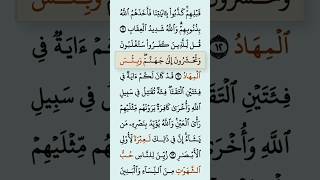 قَبْلِهِمْ كَذَّبُوا۟ بِـَٔايَـٰتِنَا فَأَخَذَهُمُ ٱللَّهُ
بِذُنُوبِهِمْ وَٱللَّهُ شَدِيدُ ٱلْعِقَابِ
قُل لِّلَّذِينَ كَفَرُوا۟ سَتُغْلَبُونَ
وَتُحْشَرُونَ إِلَىٰ جَهَنَّمَ وَبِئْسَ
ٱلْمِهَادُ ١٢ قَدْ كَانَ لَكُمْ ءَايَةٌ فِى
فِئَتَيْنِ ٱلْتَقَتَا فِئَةٌ تُقَـٰتِلُ فِى سَبِيلِ
ٱللَّهِ وَأُخْرَىٰ كَافِرَةٌ يَرَوْنَهُم مِّثْلَيْهِمْ
رَأْىَ ٱلْعَيْنِ وَٱللَّهُ يُؤَيِّدُ بِنَصْرِهِۦ مَن
يَشَآءُ إِنَّ فِى ذَٰلِكَ لَعِبْرَةً لِّأُو۟لِى
ٱلْأَبْصَـٰرِ ١٣ زُيِّنَ لِلنَّاسِ حُبُّ
ٱلشَّهَوَٰتِ مِنَ ٱلنِّسَآءِ وَٱلْبَنِينَ